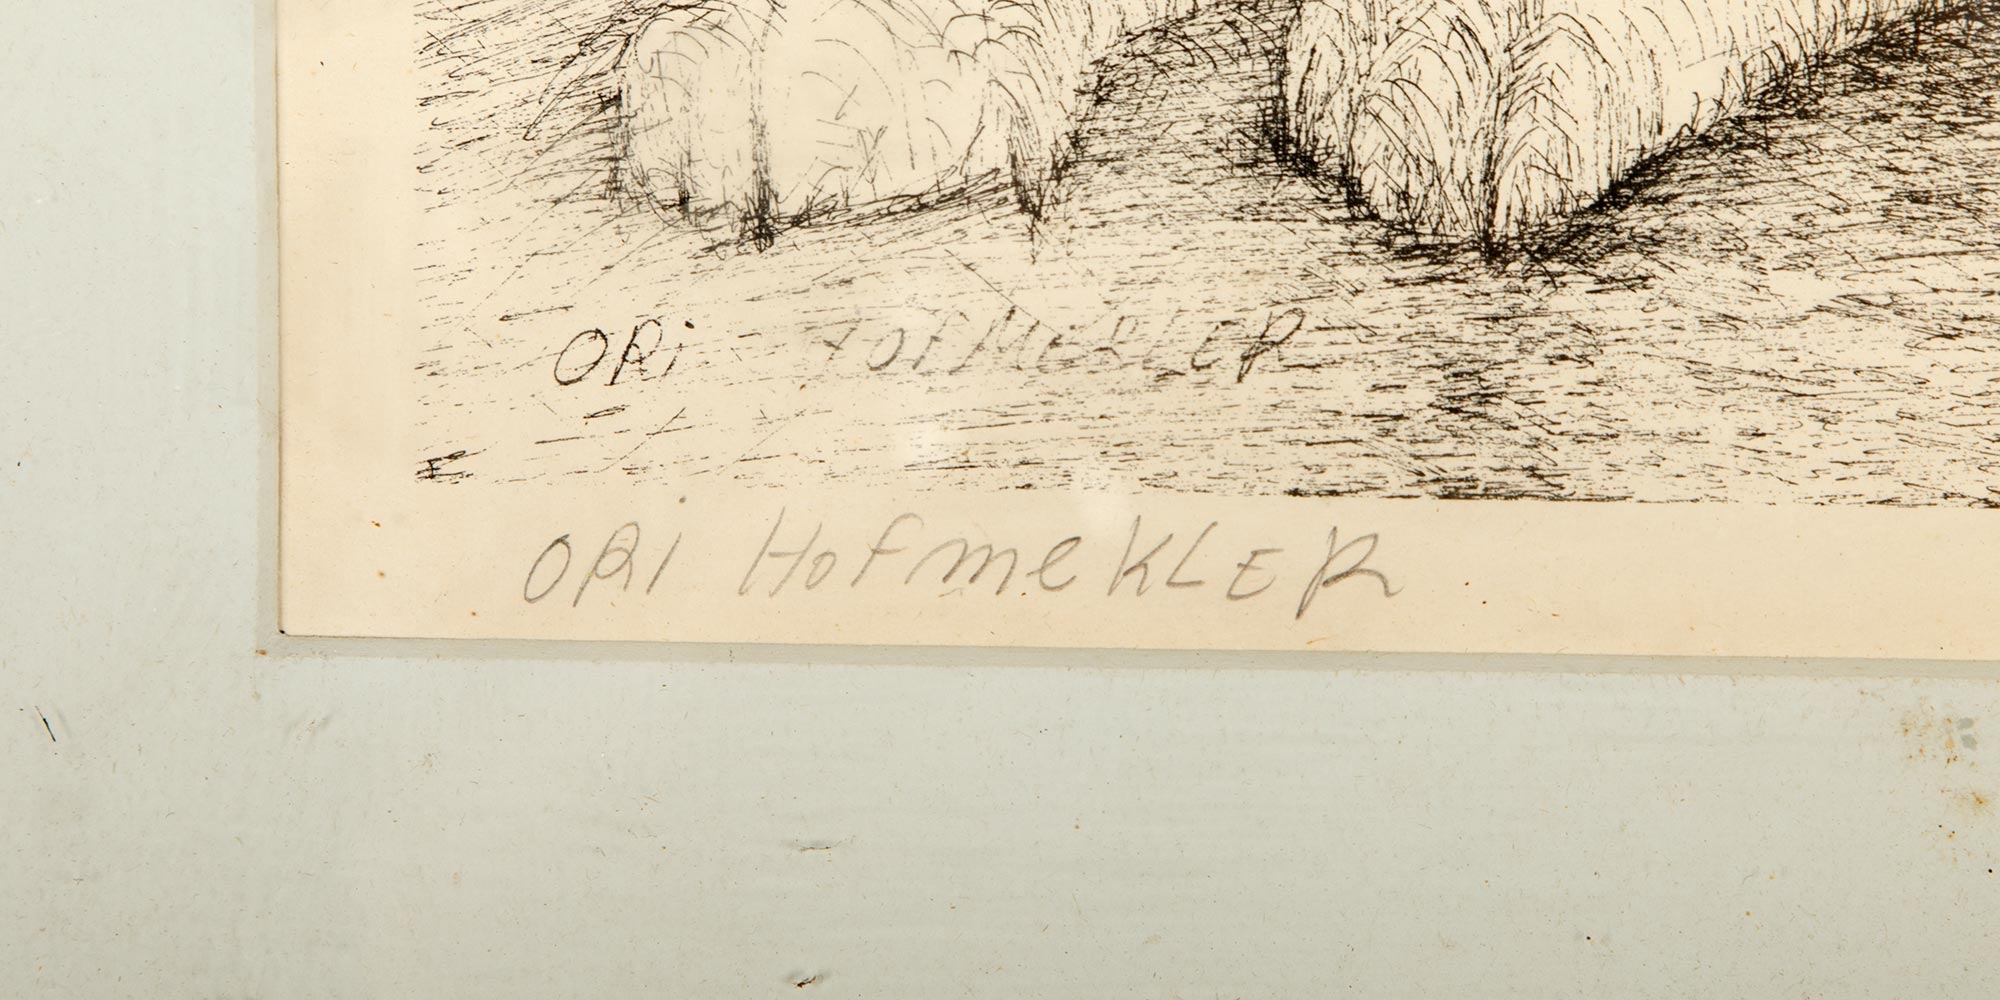 ORi HOFMEKLER
ORi HofmeKLER